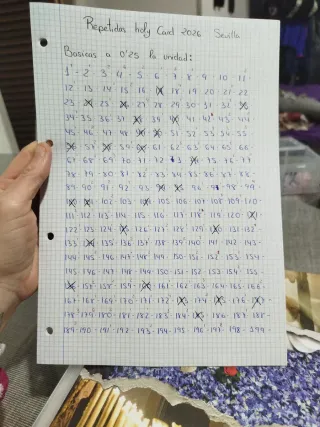 Repetidas holy Card 2026 Sevilla
Basicas a 0'25 la unidad:
1 - 2 - 3 - 4 - 5 - 6 - 7 - 8 - 9 - 10 - 11 -
12 - 13 - 14 - 15 - 16 - 18 - 19 - 20 - 21 - 22
23 - 26 - 28 - 29 - 30 - 31 -
34 - 35 - 36 - 37 - 39 - 41 - 42 - 43 - 44
45 - 46 - 47 - 48 - 51 - 52 - 53 - 54 - 55 -
57 - 59 - 61 - 62 - 63 - 64 - 65 - 66
67 - 68 - 69 - 70 - 71 - 72 - 73 - 75 - 76 - 77
78 - 79 - 80 - 81 - 82 - 83 - 84 - 85 - 86 - 87 - 88 -
89 - 90 - 91 - 92 - 93 - 96 - 98 - 99 -
102 - 103 - 105 - 106 - 107 - 108 - 109 - 110
111 - 112 - 113 - 114 - 115 - 116 - 117 - 118 - 119 - 120 -
122 - 123 - 124 - 126 - 127 - 128 - 129 - 131 - 132 -
133 - 135 - 136 - 137 - 138 - 139 - 140 - 141 - 142 - 143 -
144 - 145 - 146 - 147 - 148 - 149 - 150 - 151 - 152 - 153 - 154 -
145 - 146 - 147 - 148 - 149 - 150 - 151 - 152 - 153 - 154 - 155 -
157 - 158 - 159 - 161 - 162 - 163 - 164 - 165 - 166 -
167 - 168 - 169 - 170 - 171 - 172 - 174 - 176 -
178 - 179 - 180 - 181 - 182 - 183 - 184 - 186 - 187 - 188 -
189 - 190 - 191 - 192 - 193 - 194 - 195 - 196 - 197 - 198 - 199 -